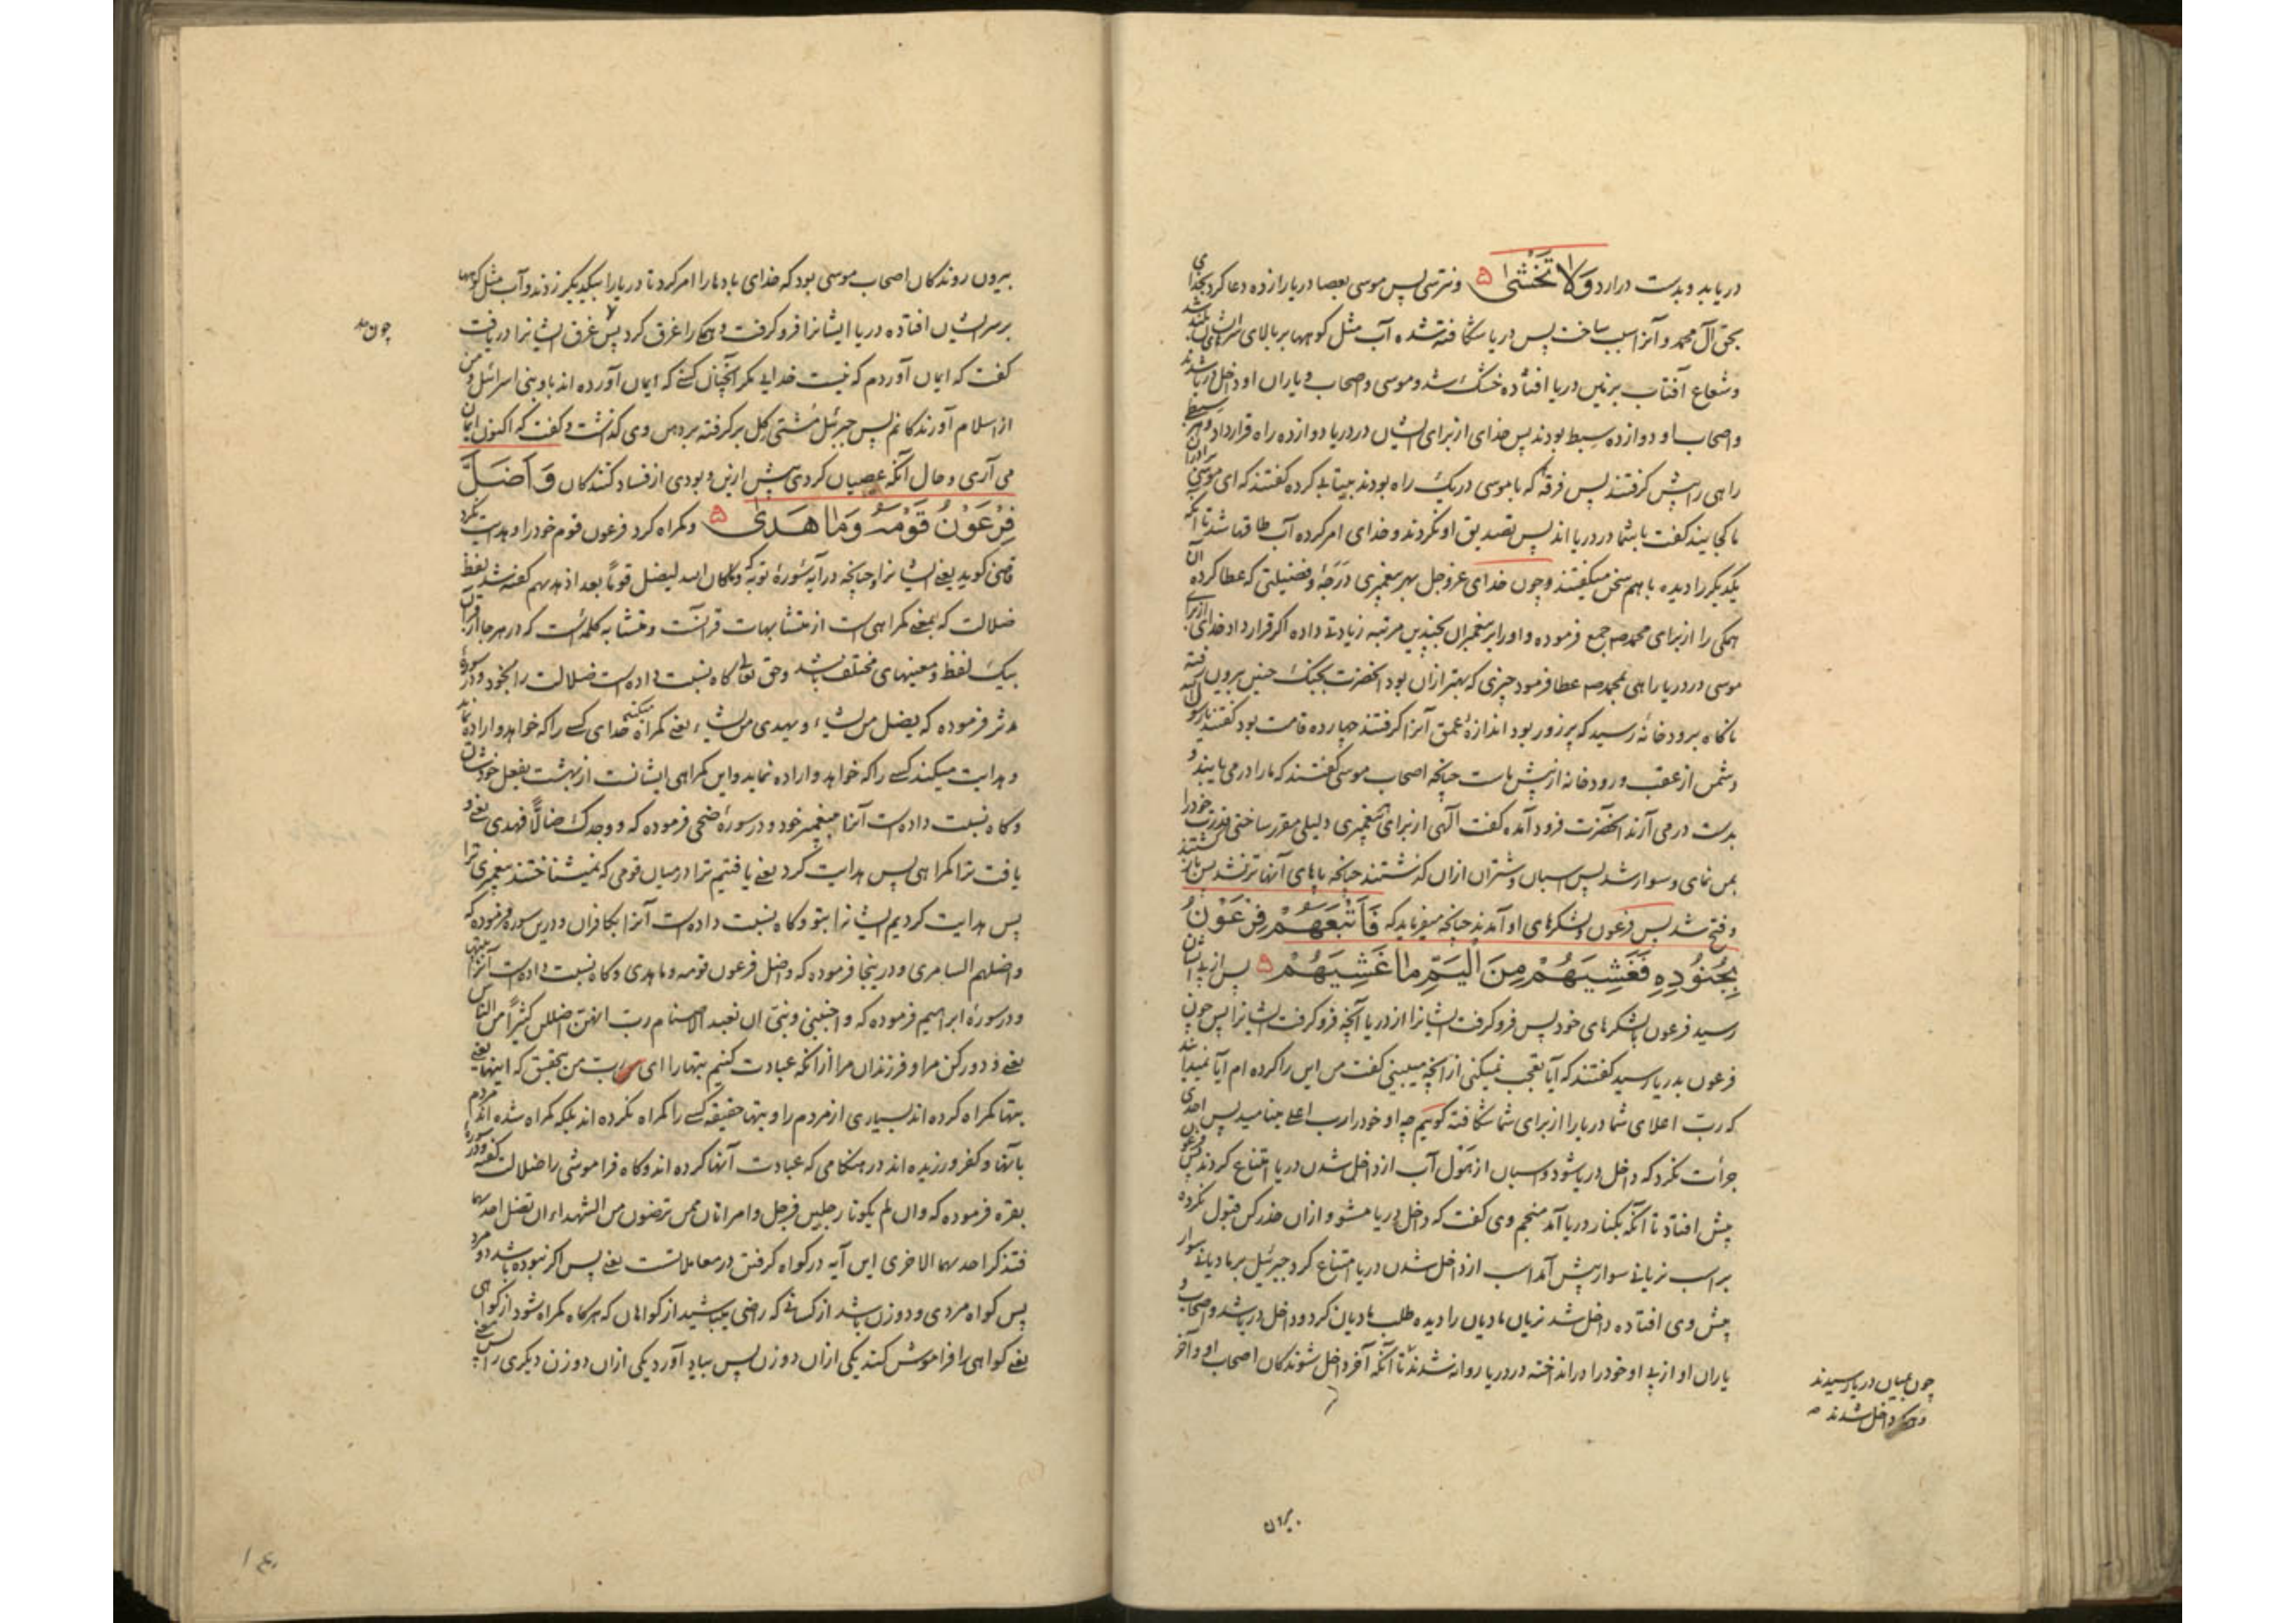 در یابد و بدست درارد وَلا تَخْشیٰ ۵ و نترسی پس موسی بعصا دریا را زده دعا کرد بخدای
بحق آل محمد و آنرا سبب ساخت پس دریا شکافته شده آب مثل کوهها بر بالای سر ایشان بلند شد
و شعاع آفتاب بر زمین دریا افتاده خشک شد و موسی و اصحاب و یاران او داخل دریا شدند
و اصحاب او دوازده سبط بودند پس خدای از برای ایشان در دریا دوازده راه قرارداد و هر سبط
راهی را پیش کرفتند پس فرقه که با موسی در یک راه بودند بیتابی کرده کفتند که ای موسی برادران
ما کجایند کفت با شما در دریا اند پس تصدیق او نکردند و خدای امر کرده آب طاقها شد تا آنکه
یکدیکر را دیده با هم سخن میکفتند و چون خدای عزوجل بهر پیغمبری درجۀ و فضیلتی که عطا کرده آن
همکی را از برای محمد صم جمع فرموده و او را بر پیغمبران بچندین مرتبه زیادتی داده اکر قرار داد خدای از برای
موسی در دریا راهی بمحمد صم عطا فرمود چیزی که بهتر ازان بود انحضرت بجنک حنین بیرون رفته
ناکاه برودخانۀ رسید که پر زور بود اندازۀ عمق آنرا کرفتند چهارده قامت بود کفتند یا رسول الله
دشمن از عقب و رودخانه از پیش ماست چنانچه اصحاب موسی کفتند که ما را در می یابند و
بدست در می آرند انحضرت فرود آمده کفت الهی از برای هر پیغمبری دلیلی مقرر ساختی قدرت خود را
بمن نمای و سوار شد پس اسبان و شتران ازان کذشتند چنانچه پاهای آنها تر نشد پس
و فتح شد پس فرعون و لشکرهای او آمدند چنانچه میفرماید که فَاَتْبَعَهُمْ فِرْعَوْنُ
بِجُنُودِهِ فَغَشِیَهُمْ مِنَ الْیَمِّ ما غَشِیَهُمْ ۵ پس از پی ایشان
رسید فرعون با لشکرهای خود پس فرو کرفت ایشانرا از دریا آنچه فرو کرفت ایشانرا پس چون
فرعون بدریا رسید کفتند که آیا تعجب نمیکنی از آنچه میبینی کفت من این را کرده ام آیا نمیدانید
که رب اعلای شما دریا را از برای شما شکافته کوییم چه او خود را رب اعلی مینامید پس احدی
جرأت نکرد که داخل دریا شود و اسبان از هول آب از داخل شدن دریا امتناع کردند پس فرعون
پیش افتاد تا آنکه بکنار دریا آمد منجم وی کفت که داخل دریا مشو و ازان حذر کن قبول نکرده
بر اسب نریانی سوار پیش آمد اسب از داخل شدن دریا امتناع کرد جبرئیل بر مادیانی سوار
پیش وی افتاده داخل شد نریان مادیان را دیده طلب مادیان کرد و داخل دریا شد و اصحاب و
یاران او از پی او خود را در انداخته در دریا روانه شدند تا آنکه آخر داخل شوندکان اصحاب او و آخر
چون بمیان دریا رسیدند
و همکی داخل شدند
بیرون
بیرون روندکان اصحاب موسی بود که خدای بادها را امر کرد تا دریا را بیکدیکر زدند و آب مثل کوهها
بر سر ایشان افتاده دریا ایشانرا فرو کرفت و همکی را غرق کرد پس غرق ایشانرا دریافت
چون
کفت که ایمان آوردم که نیست خدایی مکر آنچنان کسی که ایمان آورده اند باو بنی اسرائیل و من
از اسلام آورندکانم پس جبرئیل مشتی کل بر کرفته بر دهن وی کذاشت و کفت که اکنون ایمان
می آری و حال آنکه عصیان کردی پیش ازین و بودی از فساد کنندکان وَاَضَلَّ
فِرْعَوْنُ قَوْمَهُ وَما هَدیٰ ۵ و کمراه کرد فرعون قوم خود را و هدایت نکرد
قاضی کوید یعنی ایشانرا و چنانچه در آیه سورۀ توبه که و ما کان الله لیضل قوماً بعد اذ هدیهم کفته شد لفظ
ضلالت که بمعنی کمراهی است از متشابهات قرآنست و متشابه کلمه ئیست که در هر جا از قرآن
بیک لفظ و معنیهای مختلف باشد و حق تعالی کاه نسبت داده است ضلالت را بخود و در سورۀ
مدثر فرموده که یضل من یشاء و یهدی من یشاء یعنی کمراه میکند خدای کسی را که خواهد و اراده نماید
و هدایت میکند کسی را که خواهد و اراده نماید و این کمراهی ایشانست از بهشت بفعل خودشان
و کاه نسبت داده است آنرا بپیغمبر خود و در سورۀ ضحی فرموده که و وجدک ضالّاً فهدی یعنی و
یافت ترا کمراهی پس هدایت کرد یعنی یافتیم ترا در میان قومی که نمیشناختند پیغمبری ترا
پس هدایت کردیم ایشانرا بتو و کاه نسبت داده است آنرا بکافران و درین سوره فرموده که
و اضلهم السامری و در ینجا فرموده که و اضل فرعون قومه و ما هدی و کاه نسبت داده است آنرا ببتها
و در سورۀ ابراهیم فرموده که و اجنبنی و بنیّ ان نعبد الاصنام رب انهن اضللن کثیراً من الناس
یعنی و دور کن مرا و فرزندان مرا از آنکه عبادت کنیم بتها را ای رب من بتحقیق که اینها یعنی
بتها کمراه کرده اند بسیاری از مردم را و بتها حقیقه کسی را کمراه نکرده اند بلکه کمراه شده اند مردم
بآنها و کفر ورزیده اند در هنکامی که عبادت آنها کرده اند و کاه فراموشی را ضلالت کفته و در سورۀ
بقره فرموده که و ان لم یکونا رجلین فرجل و امراتان ممن ترضون من الشهداء ان تضل احدیهما
فتذکر احدیهما الاخری این آیه در کواه کرفتن در معاملاتست یعنی پس اکر نبوده باشد دو مرد
پس کواه مردی و دو زن باشد از کسانی که راضی میباشید از کواهان که هرکاه کمراه شود از کواهی
یعنی کواهی را فراموش کند یکی ازان دو زن پس بیاد آورد یکی ازان دو زن دیکری را پس یعنی